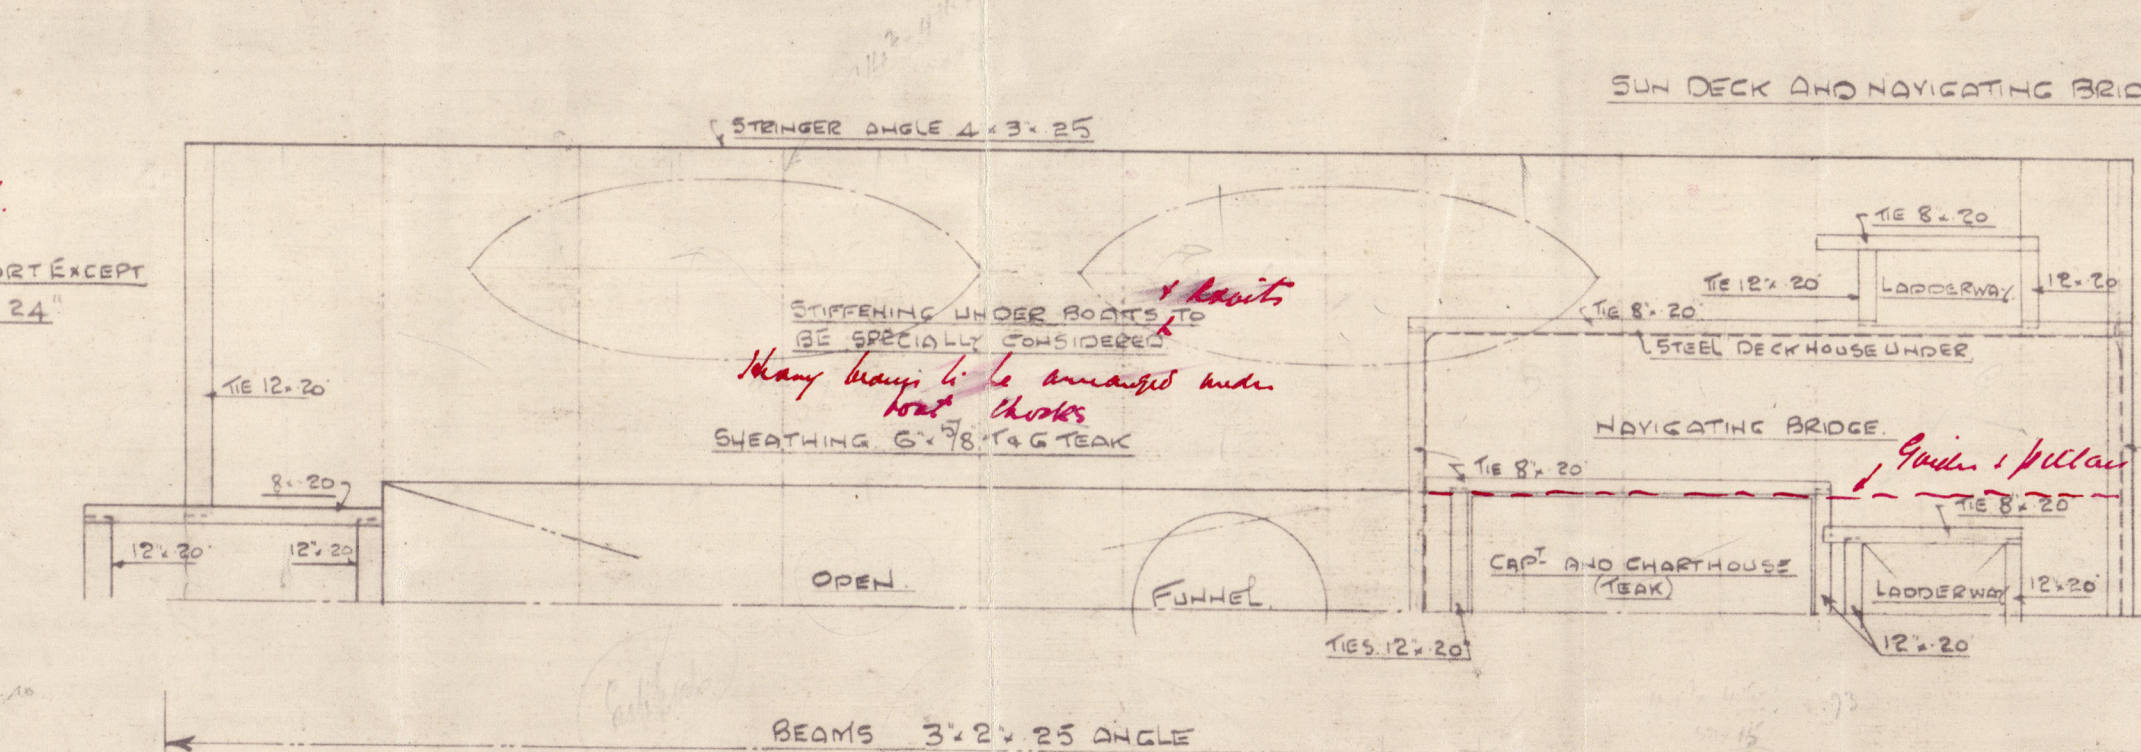 SUN DECK AND NAVIGATING BRID
STRINGER ANGLE 4 × 3" × .25
TIE 8" × .20
ORT EXCEPT
24"
TIE 12" × .20"
LADDERWAY
12" × .20
& davits
STIFFENING UNDER BOATS TO
BE SPECIALLY CONSIDERED
TIE 8" × .20"
STEEL DECKHOUSE UNDER
Heavy beams to be arranged under
boat chocks
TIE 12" × .20"
SHEATHING 6" × 5/8" T & G TEAK
NAVIGATING BRIDGE.
Girder & pillars
TIE 8" × .20"
8" × .20
TIE 8" × .20
12" × .20"
12" × .20
OPEN.
FUNNEL.
CAPT AND CHARTHOUSE
(TEAK)
LADDERWAY
12" × .20"
TIES. 12" × .20"
12" × .20
BEAMS 3" × 2" × .25 ANGLE